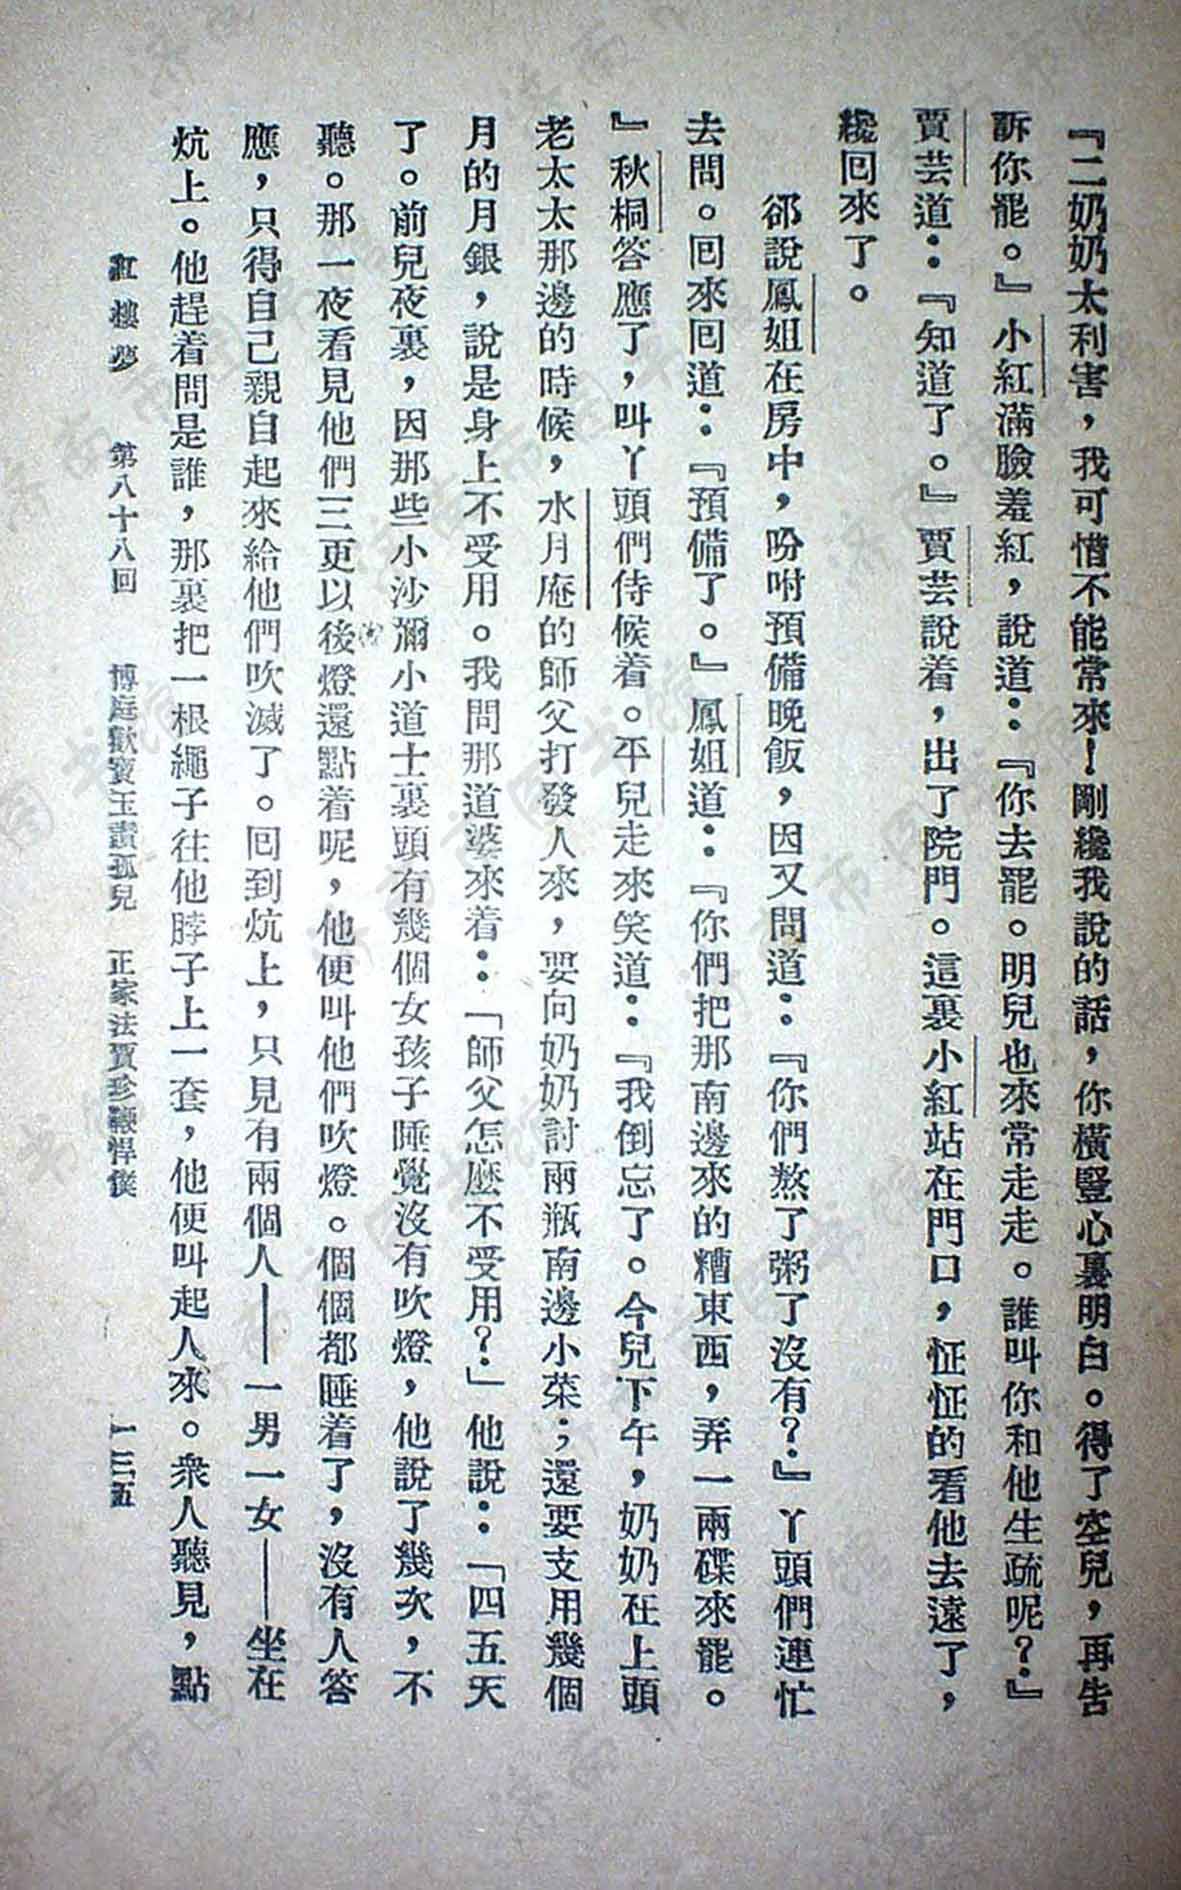 『二奶奶太利害，我可惜不能常來！剛纔我說的話，你橫豎心裏明白。得了空兒，再告
訴你罷。』小紅滿臉羞紅，說道：『你去罷。明兒也來常走走。誰叫你和他生疏呢？』
賈芸道：『知道了。』賈芸說着，出了院門。這裏小紅站在門口，怔怔的看他去遠了，
纔回來了。
卻說鳳姐在房中，吩咐預備晚飯，因又問道：『你們熬了粥了沒有？』丫頭們連忙
去問。回來回道：『預備了。』鳳姐道：『你們把那南邊來的糟東西，弄一兩碟來罷。
』秋桐答應了，叫丫頭們侍候着。平兒走來笑道：『我倒忘了。今兒下午，奶奶在上頭
老太太那邊的時候，水月庵的師父打發人來，要向奶奶討兩瓶南邊小菜；還要支用幾個
月的月銀，說是身上不受用。我問那道婆來着：「師父怎麼不受用？」他說：「四五天
了。前兒夜裏，因那些小沙彌小道士裏頭有幾個女孩子睡覺沒有吹燈，他說了幾次，不
聽。那一夜看見他們三更以後燈還點着呢，他便叫他們吹燈。個個都睡着了，沒有人答
應，只得自己親自起來給他們吹滅了。回到炕上，只見有兩個人——一男一女——坐在
炕上。他趕着問是誰，那裏把一根繩子往他脖子上一套，他便叫起人來。衆人聽見，點
紅樓夢　第八十八回　博庭歡寶玉讚孤兒　正家法賈珍鞭悍僕　一三五